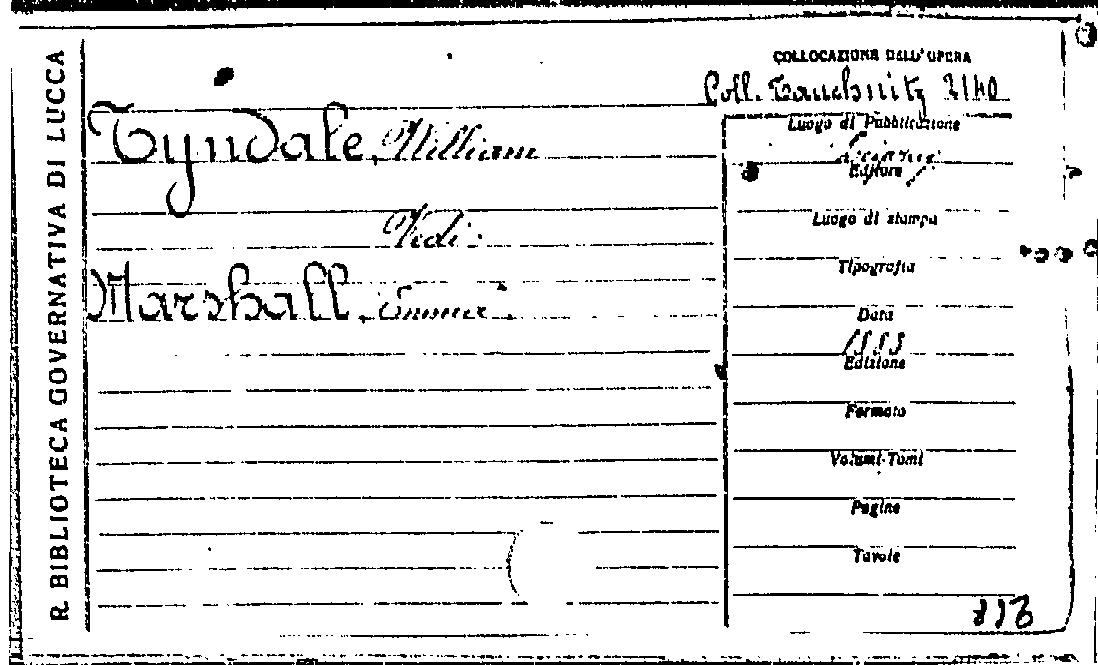 R. BIBLIOTECA GOVERNATIVA DI LUCCA
COLLOCAZIONE DELL'OPERA
Coll. Tauchnitz 2140
Tyndale, William
Vedi:
Marshall, Emma.
Luogo di Pubblicazione
Editore
Luogo di stampa
Tipografia
Data
1883
Edizione
Formato
Volumi-Tomi
Pagine
Tavole